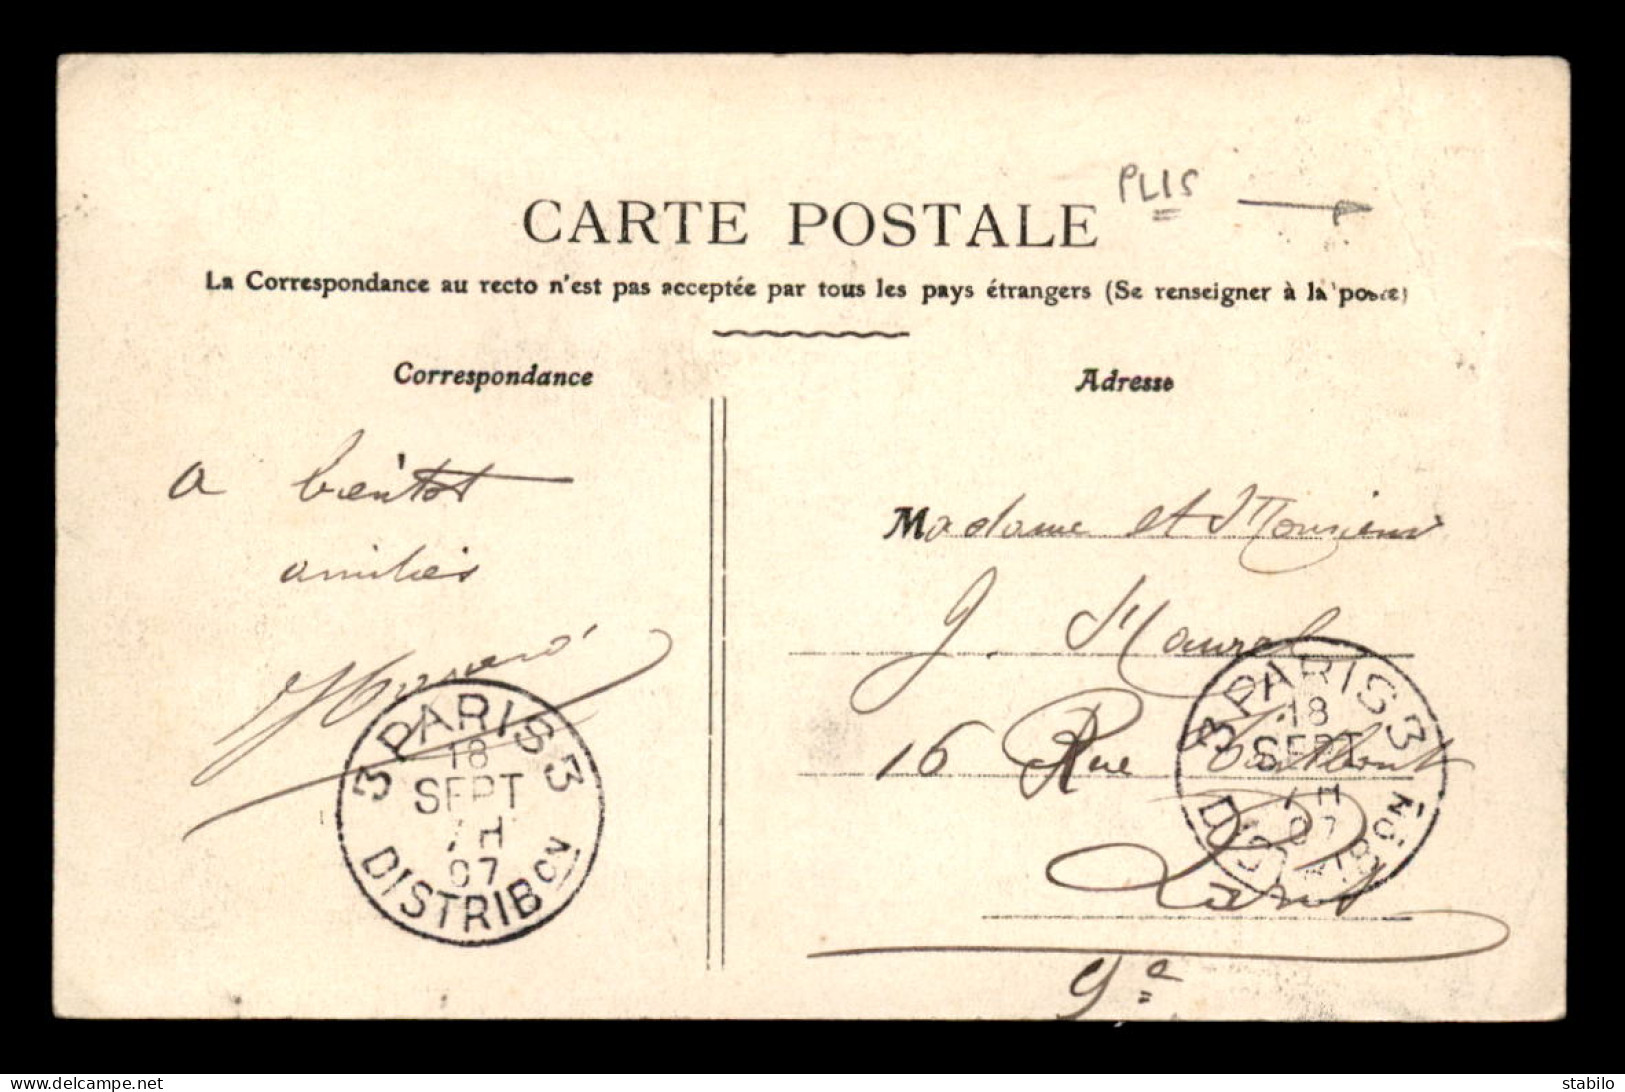 PLIS
CARTE POSTALE
La Correspondance au recto n'est pas acceptée par tous les pays étrangers (Se renseigner à la poste)
Correspondance
a bientot
amitiés
3 PARIS 3
18
SEPT
7 H
07
DISTRIBON
Adresse
Madame et Monsieur
J. Maurel
16 Rue Taitbout
Paris
9e
3 PARIS 3
18
SEPT
7 H
07
DISTRIBON
delcampe.net
stabilo